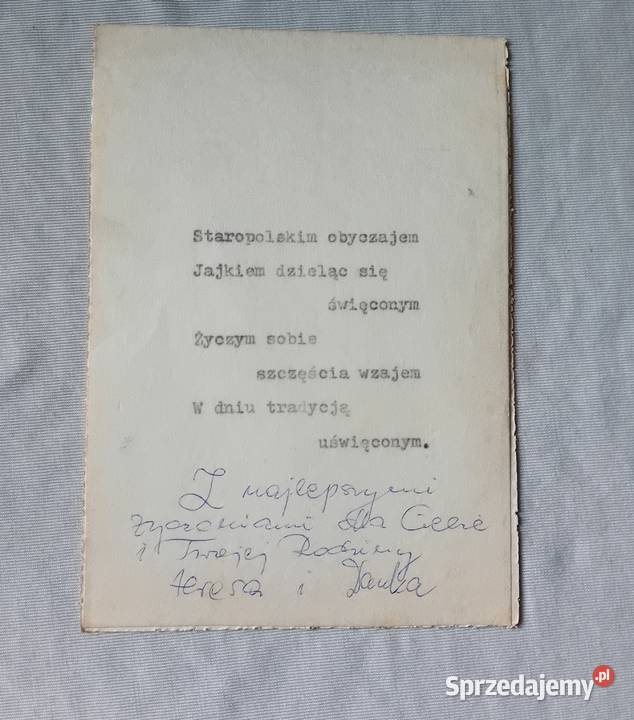 Staropolskim obyczajem
Jajkiem dzieląc się
święconym
Życzym sobie
szczęścia wzajem
W dniu tradycją
uświęconym.
Z najlepszymi
życzeniami dla Ciebie
i Twojej Rodziny
Teresa i Danka
Sprzedajemy.pl